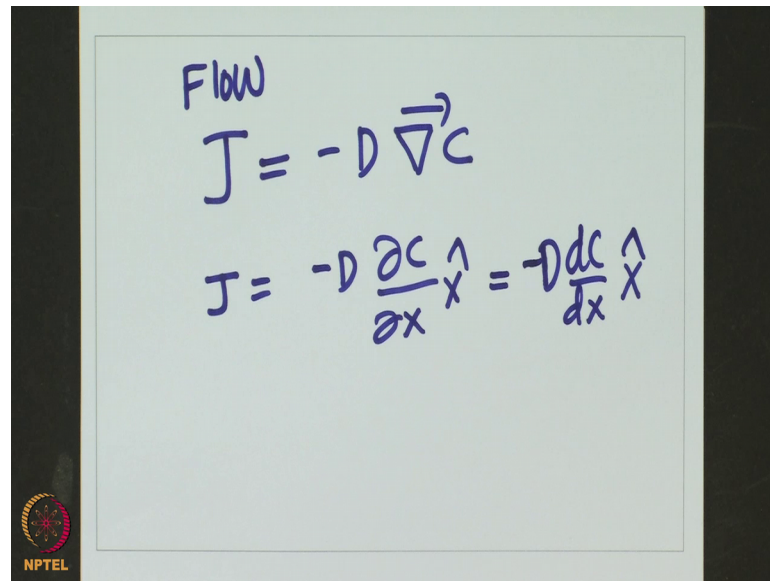 Flow
J = -D ∇⃗ C
J = -D ∂C/∂x x̂ = -D dC/dx x̂
NPTEL